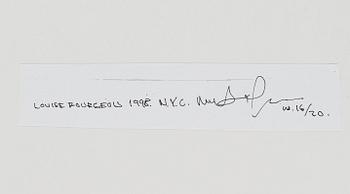 LOUISE BOURGEOIS 1998. N.Y.C. w.16/20.